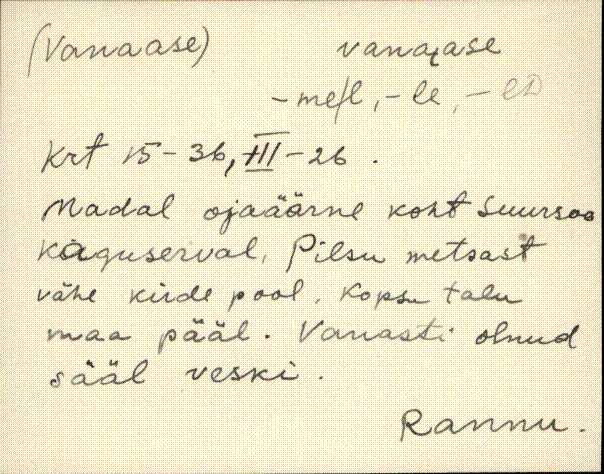 (Vanaase) vanaase
-mel, -le, -lD
Krt 15-36, III-26.
Madal ojaäärne koht Suursoo
kaguserval, Pilsu metsast
vähe kirde pool, Kopsu talu
maa pääl. Vanasti olnud
sääl veski.
Rannu.